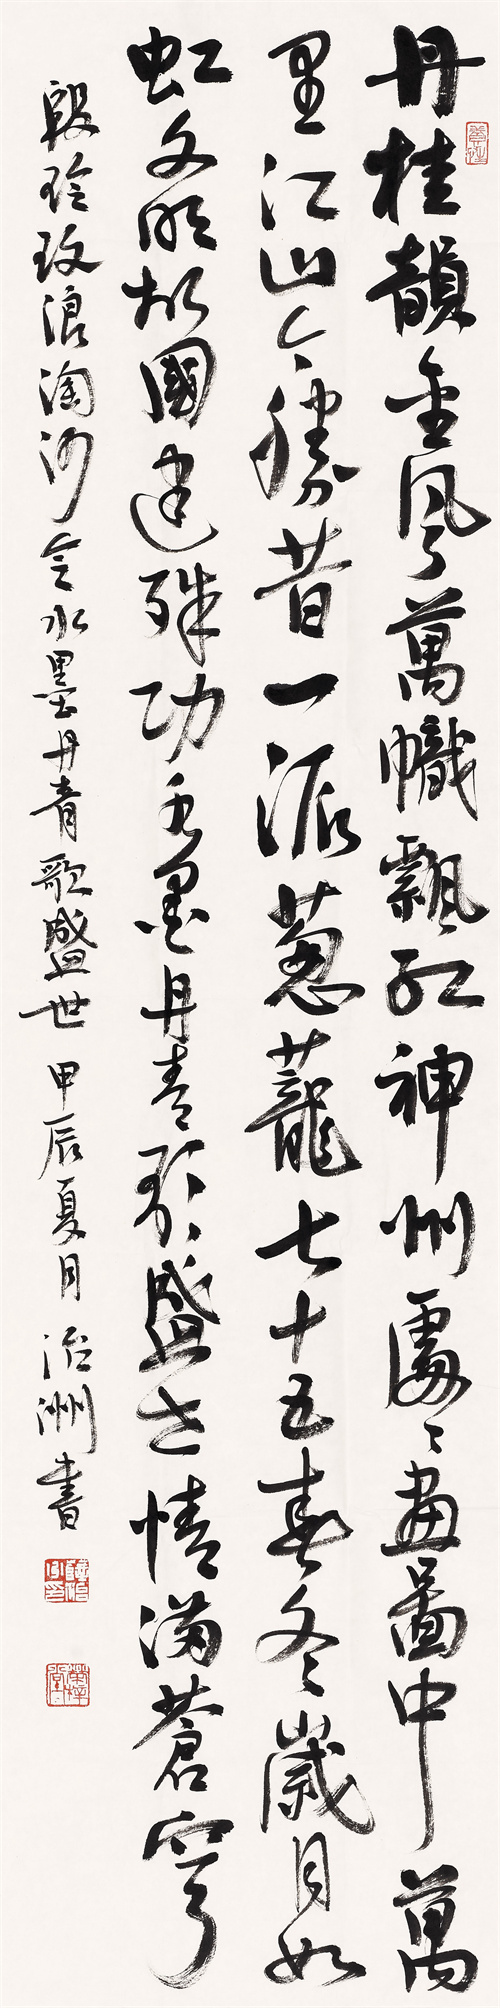 丹桂韻金風萬幟飄紅神州處々畫圖中萬
里江山今勝昔一派葱蘢七十五春冬歲月如
虹文明故國建殊功水墨丹青歌盛世情滿蒼穹
殷玲玫浪淘沙令水墨丹青歌盛世 甲辰夏月 治洲書